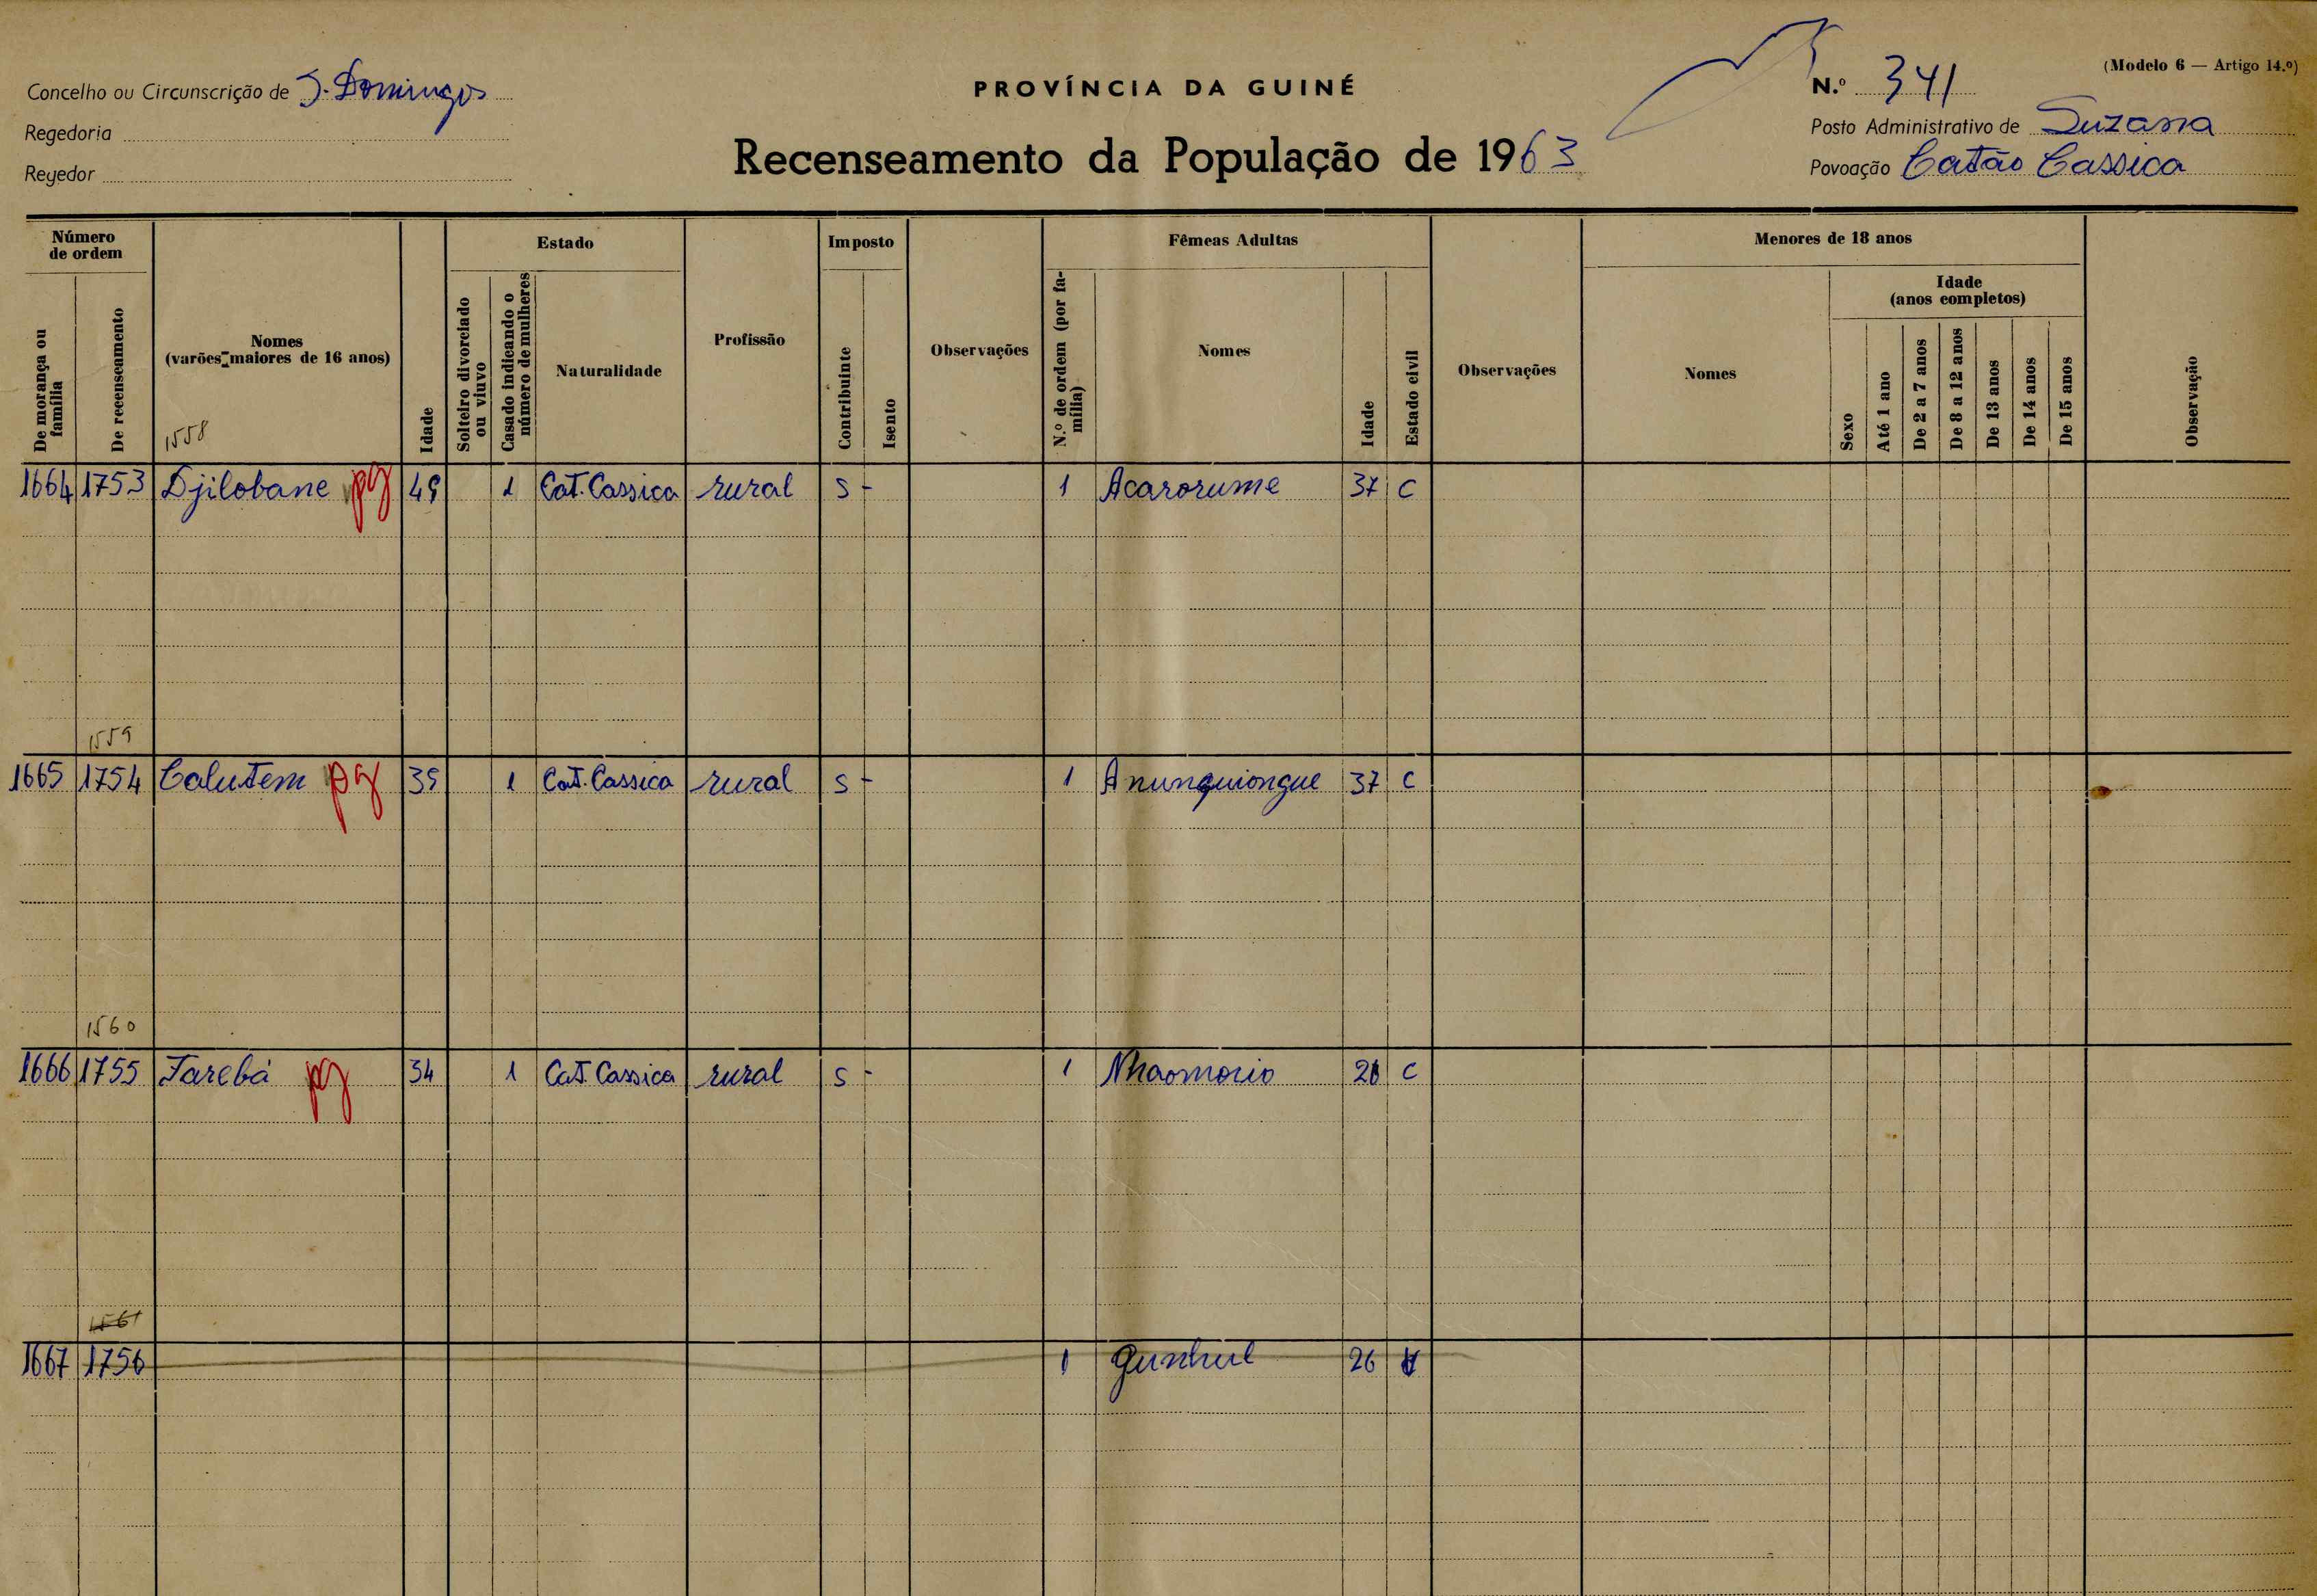 (Modelo 6 — Artigo 14.º)
Concelho ou Circunscrição de S. Domingos
PROVÍNCIA DA GUINÉ
N.º 341
Regedoria
Posto Administrativo de Suzana
Regedor
Recenseamento da População de 1963
Povoação Catão Cassica
Número de ordem
Estado
Imposto
Fêmeas Adultas
Menores de 18 anos
De morança ou família
De recenseamento
Nomes
(varões maiores de 16 anos)
Idade
Solteiro divorciado ou viuvo
Casado indicando o número de mulheres
Naturalidade
Profissão
Contribuinte
Isento
Observações
N.º de ordem (por família)
Nomes
Idade
Estado civil
Observações
Nomes
Sexo
Idade
(anos completos)
Até 1 ano
De 2 a 7 anos
De 8 a 12 anos
De 13 anos
De 14 anos
De 15 anos
Observação
1558
1664 1753 Djilobane pg 49 1 Cat. Cassica rural s - 1 Acarorume 37 C
1559
1665 1754 Calutem pg 39 1 Cat. Cassica rural s - 1 Anunquiongue 37 C
1560
1666 1755 Jarebá pg 34 1 Cat. Cassica rural s - 1 Nhaomorio C
1561
1667 1756 1 Gunhul 26